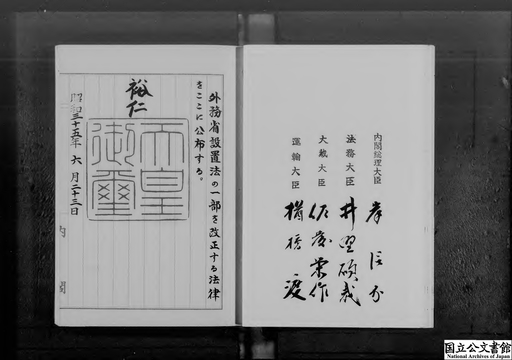 外務省設置法の一部を改正する法律
をここに公布する。
裕仁
天皇
御璽
昭和三十五年六月二十三日
内閣
内閣総理大臣 岸信介
法務大臣 井野碩哉
大蔵大臣 佐藤栄作
運輸大臣 楢橋渡
国立公文書館
National Archives of Japan